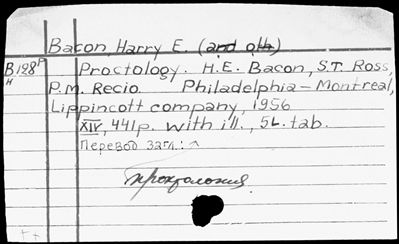 Bacon, Harry E. (and oth)
B128P Proctology. H.E. Bacon, S.T. Ross,
H P.M. Recio. Philadelphia – Montreal,
Lippincott company, 1956
XIV, 441p. with ill., 5L. tab.
Перевод загл.:
проктология